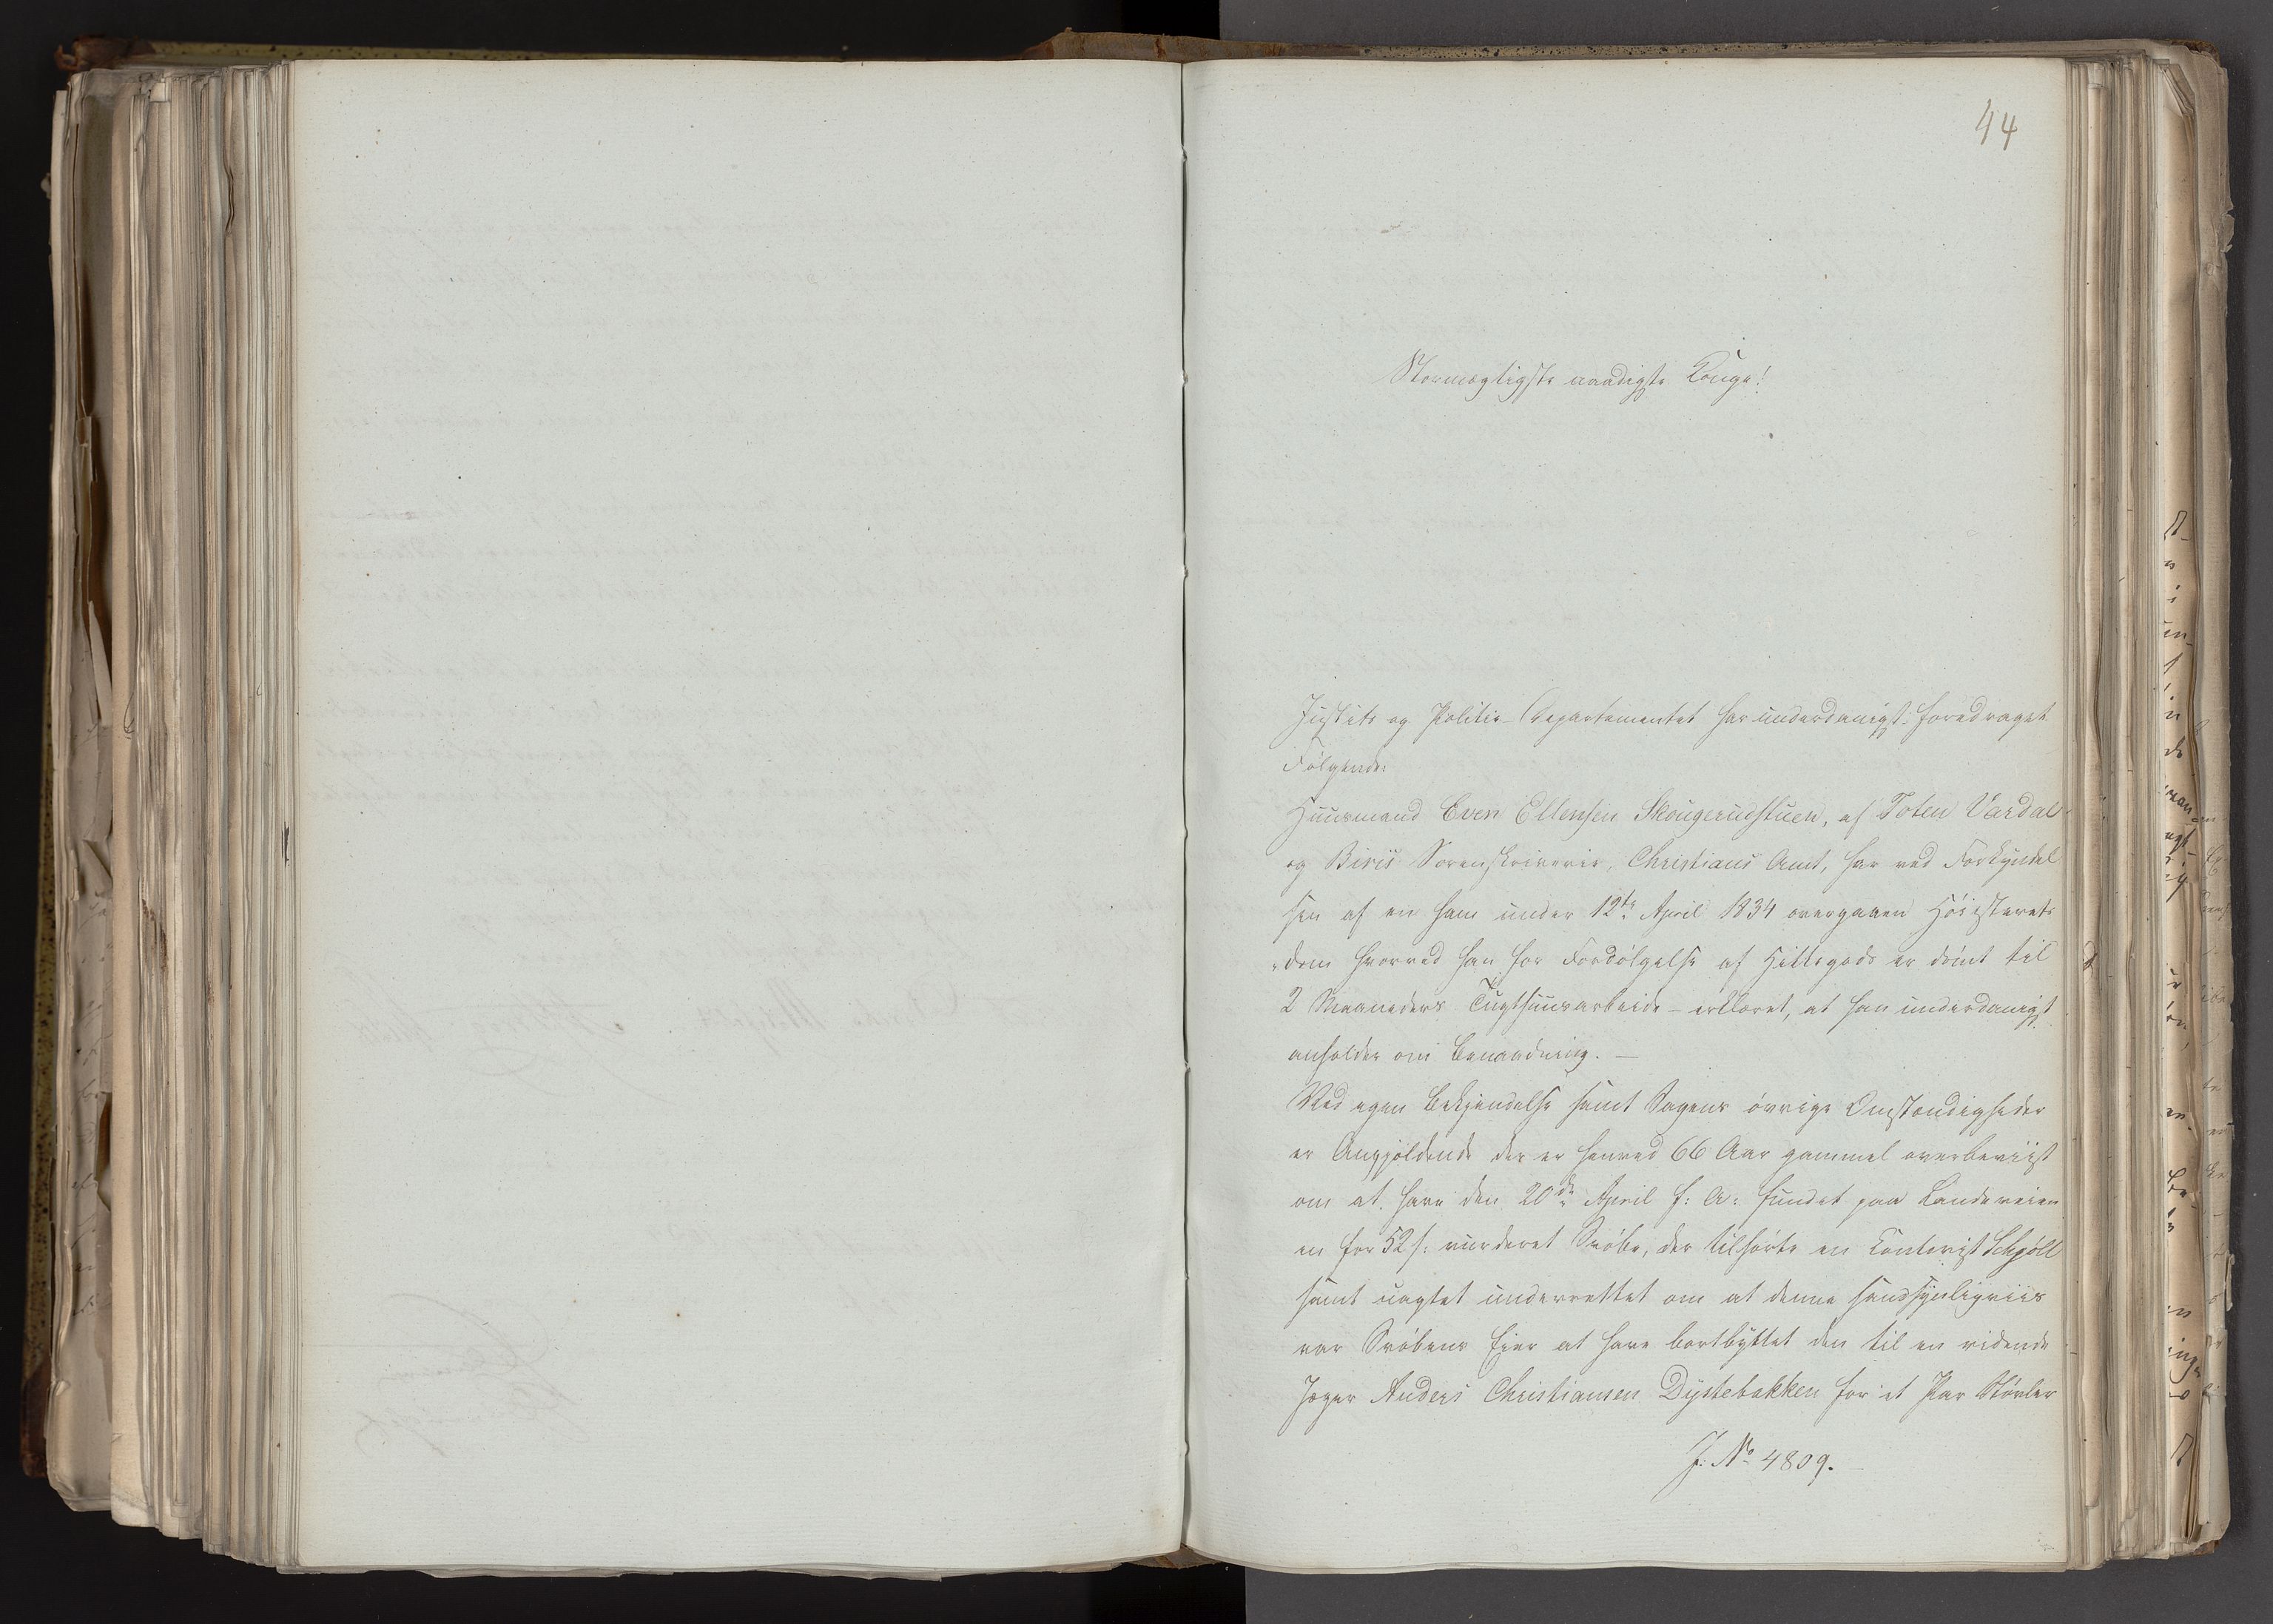 44
Stormægtigste naadigste Konge!
Justits og Politie-Departementet har underdanigst foredraget
Følgende:
Huusmand Even Ellensen Skougerudstuen, af Toten Vardal
og Biris Sorenskriverie, Christians Amt, har ved Forkyndel
sen af en ham under 12te April 1834 overgaaen Høiesterets
dom hvorved han for Fordølgelse af Hittegods er dømt til
2 Maaneders Tugthuusarbeide – erklæret, at han underdanigst
anholder om Benaadning. –
Ved egen Bekjendelse samt Sagens øvrige Omstændigheder
er Angjældende der er henved 66 Aar gammel overbeviist
om at have den 20de April f: A: fundet paa Landeveien
en for 52 s: vurderet Svøbe, der tilhørte en Contorist Schjøll
samt uagtet underrettet om at denne sandsynligviis
var Svøbens Eier at have bortbyttet den til en ridende
Jæger Anders Christiansen Dystebakken for et Par Støvler
J: No 4809.